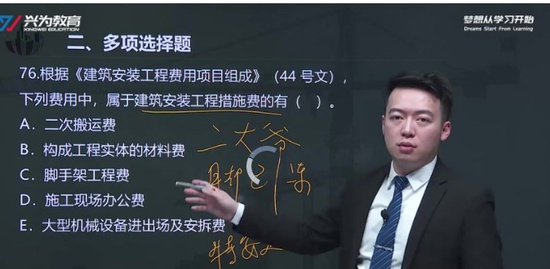 兴为教育
XINGWEI EDUCATION
梦想从学习开始
Dreams Start From Learning
二、多项选择题
76.根据《建筑安装工程费用项目组成》(44 号文),
下列费用中，属于建筑安装工程措施费的有（ ）。
A. 二次搬运费
B. 构成工程实体的材料费
C. 脚手架工程费
D. 施工现场办公费
E. 大型机械设备进出场及安拆费
二大爷